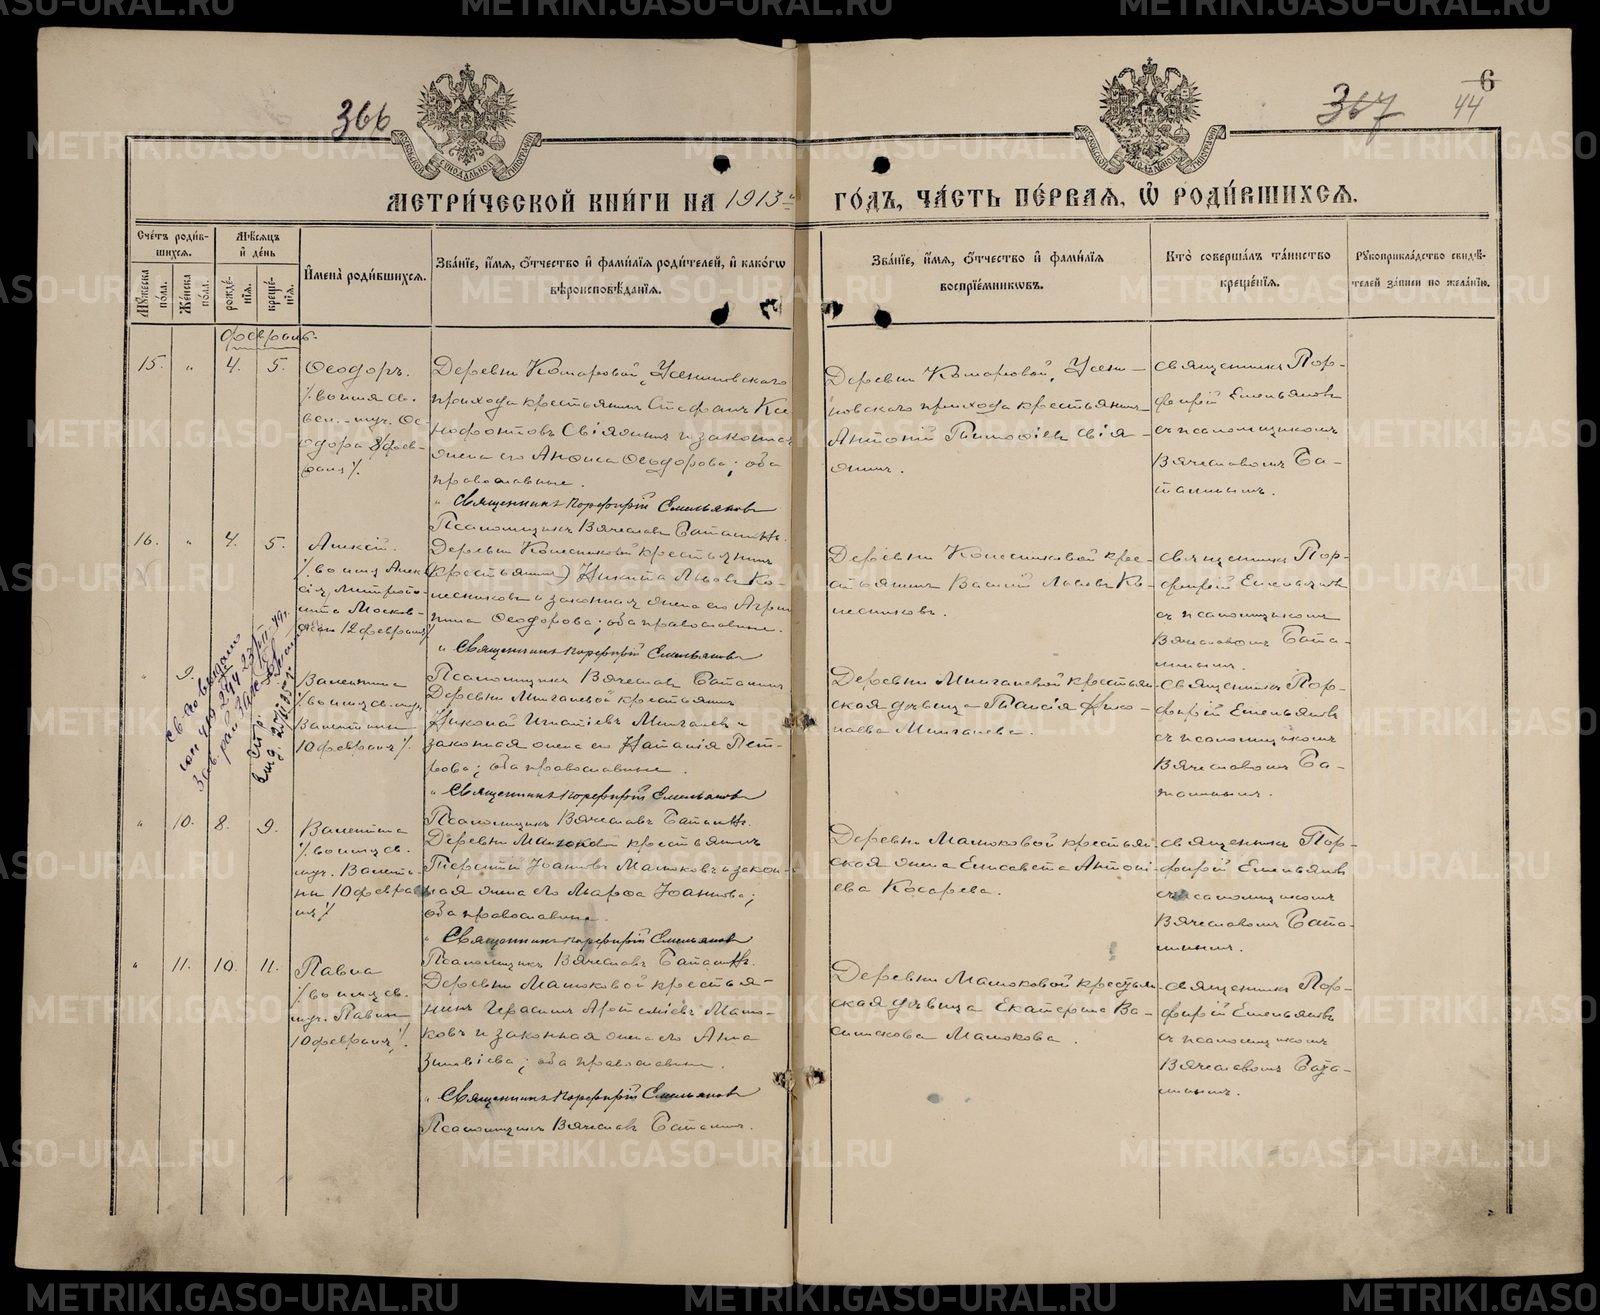 366
367
6
44
МЕТРИ́ЧЕСКОЙ КНИ́ГИ НА 1913 ГО́ДЪ, ЧА́СТЬ ПЕ́РВАЯ, Ѡ РОДИ́ВШИХСЯ.
Сче́тъ роди́в-
шихся.
Мѣ́сяцъ
и де́нь
Мꙋ́жеска по́ла.
Же́нска по́ла.
рожде́-
нія.
креще́-
нія.
И҆мена̀ роди́вшихся.
Зва́ніе, и҆́мя, ѻ҆́тчество и҆ фами́лія роди́телей, и҆ како́гѡ
вѣроисповѣ́данія.
Зва́ніе, и҆́мя, ѻ҆́тчество и҆ фами́лія
воспріе́мниковъ.
Кто̀ соверша́лъ та́инство
креще́нія.
Рꙋкоприкла́дство свидѣ́-
телей за́писи по жела́нію.
Февраль.
15. " 4. 5.
Ѳеодоръ.
/: во имя св.
вел.-муч. Ѳе-
одора 8 фев-
раля /.
Деревни Комаровой,
прихода крестьянинъ Стефанъ Ксе-
нофонтовъ Свіяжин и законная
жена его Анфиса Ѳеодорова; оба
православные.
" Священникъ Порфирій Емельяновъ
Псаломщикъ Вячеславъ
Деревни Комаровой,
прихода крестьянинъ
Антоній Тимофіевъ Свія-
жин.
Священникъ Пор-
фирій Емельяновъ
съ псаломщикомъ
Вячеславомъ
16. " 4. 5.
Алексій.
/: во имя Алек-
сія, митропо-
лита Москов-
скаго 12 февраля /
Деревни Колесниковой крестьянинъ
(крестьянинъ) Никита Львовъ Ко-
лесниковъ и законная жена его Агрип-
пина Ѳеодорова; оба православные.
" Священникъ Порфирій Емельяновъ
Псаломщикъ Вячеславъ
Деревни Колесниковой крес-
тьянинъ Василій Львовъ Ко-
лесниковъ.
Священникъ Пор-
фирій Емельяновъ
съ псаломщикомъ
Вячеславомъ
" 9.
Валентина
/: во имя св. муч.
Валентины
10 февраля /.
Деревни Мингалевой крестьянинъ
Николай Игнатіевъ Мингалевъ и
законная жена его Наталія Пет-
рова; оба православные.
" Священникъ Порфирій Емельяновъ
Псаломщикъ Вячеславъ
Деревни Мингалевой крестьян-
ская дѣвица Таисія Нико-
лаева Мингалева.
Священникъ Пор-
фирій Емельяновъ
съ псаломщикомъ
Вячеславомъ
" 10. 8. 9.
Валентина
/: во имя св.
муч. Валенти-
ны 10 февра-
ля /.
Деревни Малюковой крестьянинъ
Терентій Іоанновъ Малюковъ и закон-
ная жена его Марфа Іоаннова;
оба православные.
" Священникъ Порфирій Емельяновъ
Псаломщикъ Вячеславъ
Деревни Малюковой крестьян-
ская жена Елисавета Антоні-
ева Косарева.
Священникъ Пор-
фирій Емельяновъ
съ псаломщикомъ
Вячеславомъ
" 11. 10. 11.
Павла
/: во имя св.
муч. Павлы
10 февраля /.
Деревни Малюковой крестья-
нинъ Герасимъ Артеміевъ Малю-
ковъ и законная жена его Анна
Зиновіева; оба православные.
" Священникъ Порфирій Емельяновъ
Псаломщикъ Вячеславъ
Деревни Малюковой крестьян-
ская дѣвица Екатерина Ва-
сильева Малюкова.
Священникъ Пор-
фирій Емельяновъ
съ псаломщикомъ
Вячеславомъ
METRIKI.GASO-URAL.RU